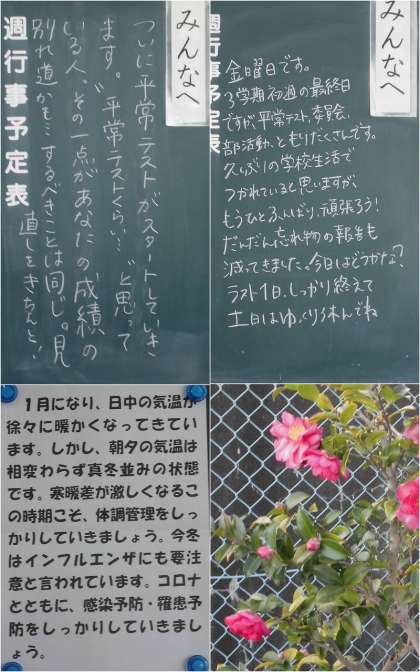 みんなへ
ついに平常テストがスタートしていき
ます。“平常テストくらい…”と思って
いる人、その一点があなたの成績の
別れ道かも…するべきことは同じ。見
直しをきちんと！
週行事予定表
みんなへ
週行事予定表
金曜日です。
3学期初週の最終日
ですが、平常テスト、委員会、
部活動、ともりだくさんです。
久しぶりの学校生活で
つかれていると思いますが、
もうひとふんばり、頑張ろう！
だんだん忘れ物の報告も
減ってきました。今日はどうかな？
ラスト1日、しっかり終えて
土日はゆっくり休んでね
1月になり、日中の気温が
徐々に暖かくなってきてい
ます。しかし、朝夕の気温は
相変わらず真冬並みの状態
です。寒暖差が激しくなるこ
の時期こそ、体調管理をしっ
かりしていきましょう。今冬
はインフルエンザにも要注
意と言われています。コロナ
とともに、感染予防・罹患予
防をしっかりしていきましょ
う。